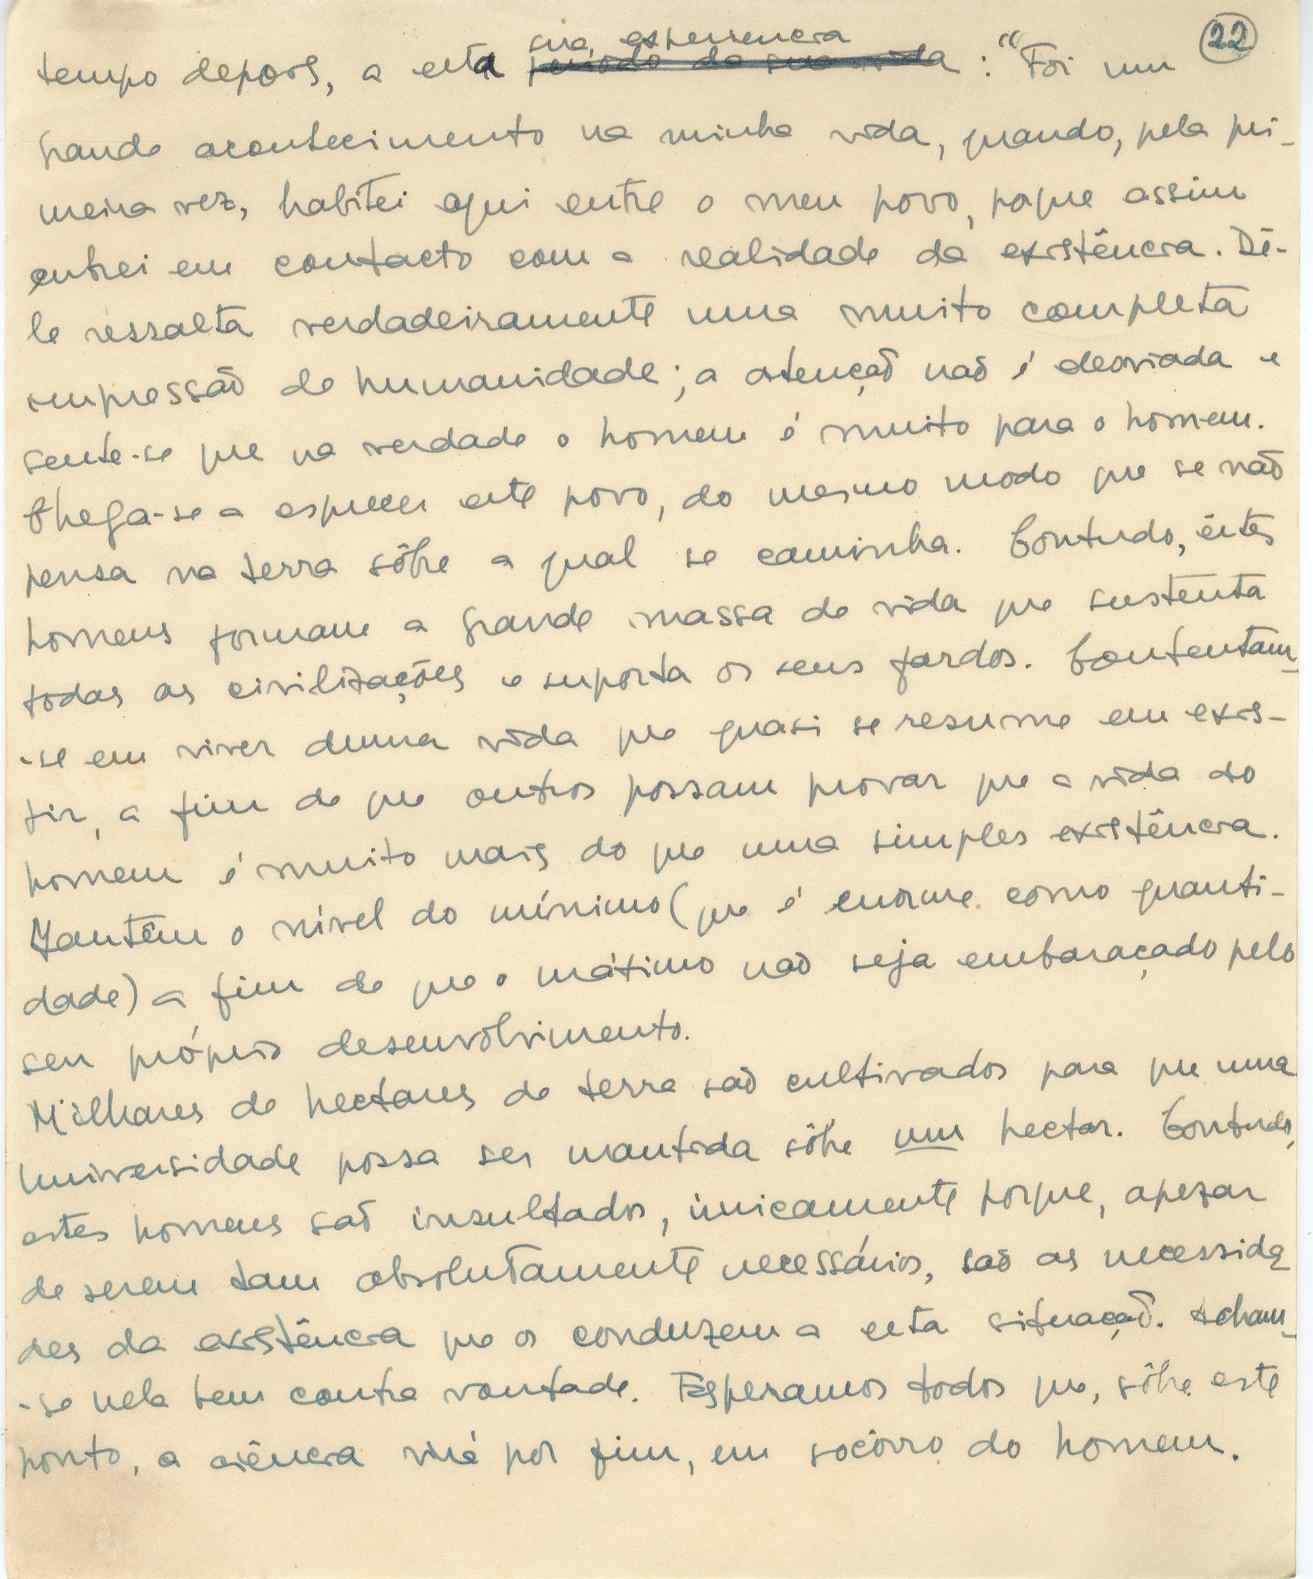 22
tempo depois, a esta sua experiencia : "Foi um
grande acontecimento na minha vida, quando, pela pri-
meira vez, habitei aqui entre o meu povo, porque assim
entrei em contacto com a realidade da existência. Dê-
le ressalta verdadeiramente uma muito completa
impressão de humanidade; a atenção não é desviada e
sente-se que na verdade o homem é muito para o homem.
Chega-se a esquecer este povo, do mesmo modo que se não
pensa na terra sôbre a qual se caminha. Contudo, êstes
homens formam a grande massa de vida que sustenta
todas as civilizações e suporta os seus fardos. Contentam-
-se em viver duma vida que quasi se resume em exis-
tir, a fim de que outros possam provar que a vida do
homem é muito mais do que uma simples existência.
Mantêm o nível do mínimo (que é enorme como quanti-
dade) a fim de que o máximo não seja embaraçado pelo
seu próprio desenvolvimento.
Milhares de hectares de terra são cultivados para que uma
Universidade possa ser mantida sôbre um hectar. Contudo,
estes homens são insultados, ùnicamente porque, apezar
de serem tam absolutamente necessários, são as necessida
des da existência que os conduzem a esta situação. Acham-
-se nela bem contra vontade. Esperamos todos que, sôbre este
ponto, a ciência virá por fim, em socôrro do homem.